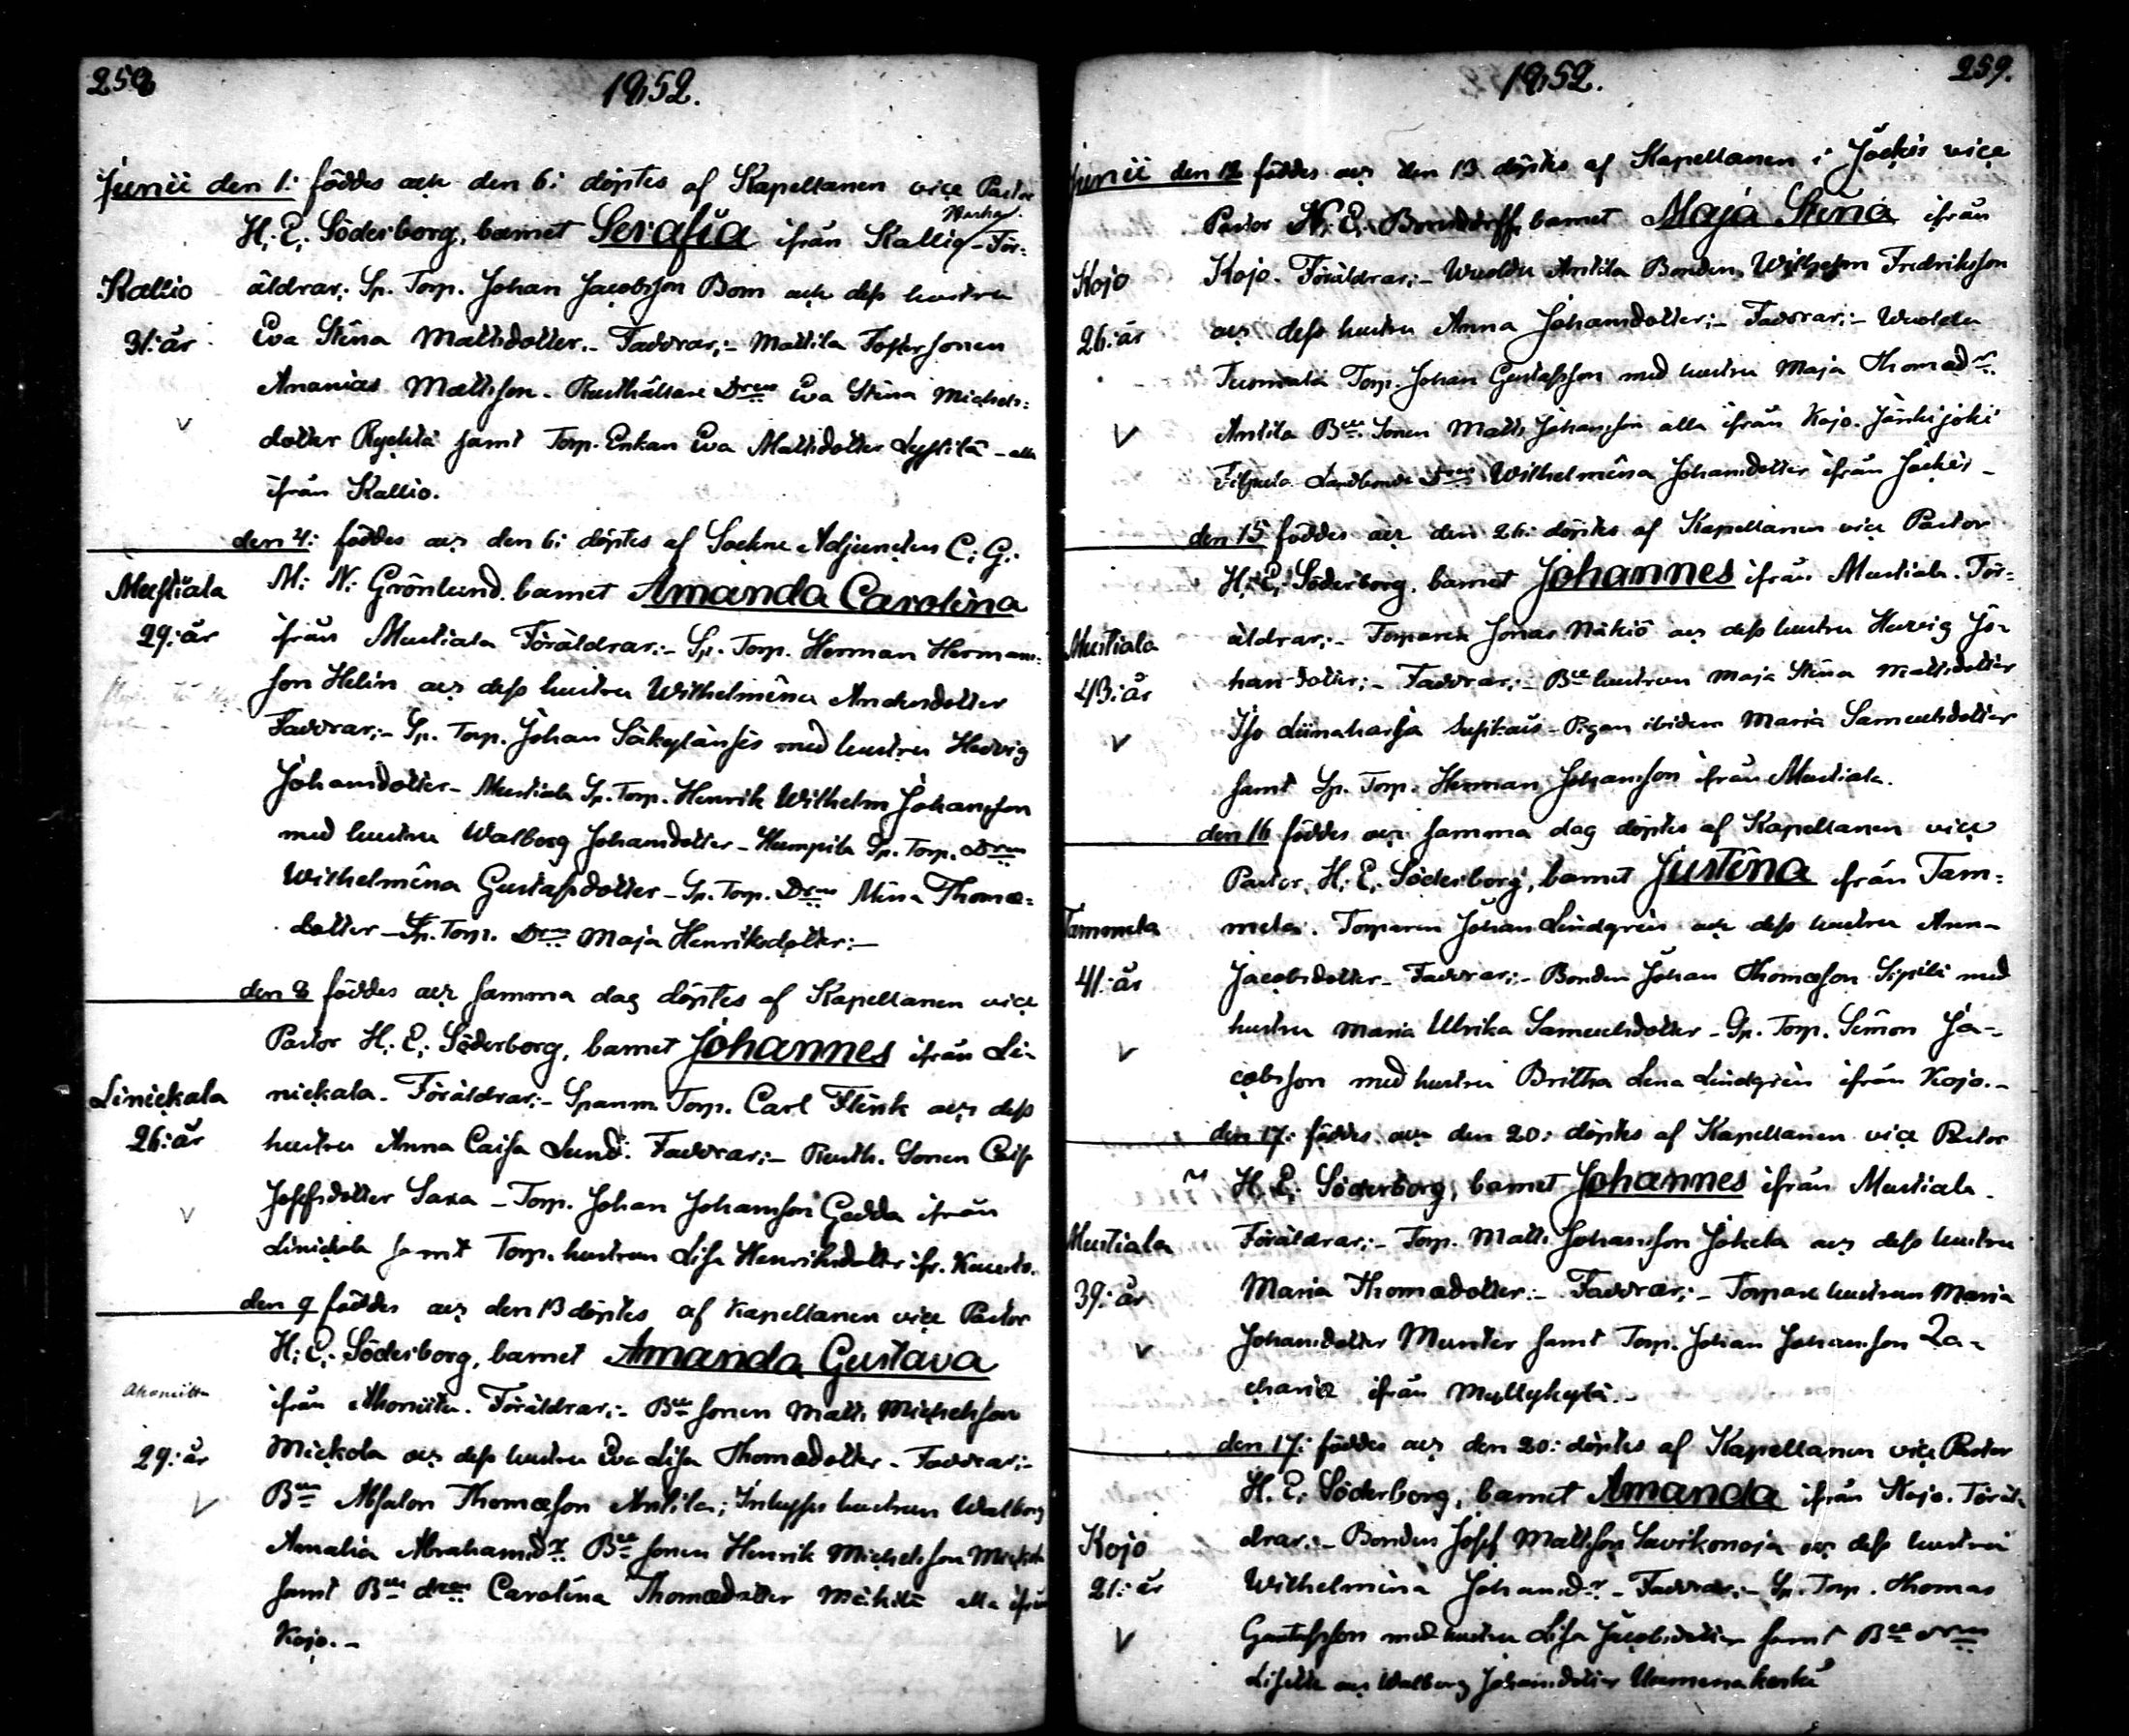 258
1852.
Junii den 1: föddes ock den 6: döptes af Kapellanen vice Pastor
H: E: Söderborg, barnet Serafia ifrån Kallio – För:
Kallio
äldrar: Sp. Torp. Johan Jacobsson Bom ock dess hustru
31: år
Eva Stina Mattsdotter. – Faddrar; – Mattila Fostersonen
Ananias Mattsson. Rusthållare Dren Eva Stina Michels:
dotter Rychtä samt Torp. Enkan Eva Mattsdotter – alla
ifrån Kallio.
den 4: föddes och den 6: döptes af Sockne Adjuncten C: G:
M: N: Grönlund barnet Amanda Carolina
Mustiala
29: år
ifrån Mustiala Föräldrar: – Sp. Torp. Herman Hermans:
son Helin och dess hustru Wilhelmina Andersdotter
Faddrar: – Sp. Torp. Johan Säkylänsis med hustru Hedvig
Johansdotter – Mustiala Sp. Torp. Henrik Wilhelm Johansson
med hustru Walborg Johansdotter – Humpila Sp. Torp. Dren
Wilhelmina Gustafsdotter – Sp. Torp. Dren Mina Thomæ:
dotter – Sp. Torp. Dren Maja Henriksdotter: –
den 8 föddes och samma dag döptes af Kapellanen vice
Pastor H: E: Söderborg, barnet Johannes ifrån Li:
Linickala
nickala. Föräldrar: – Spanm. Torp. Carl Flink och dess
26: år
hustru Anna Caisa Lund. Faddrar: – Rusth. Sonen Caisa
Josefsdotter Saxa – Torp. Johan Johansson Gädda ifrån
Linickala samt Torp. hustrun Lisa Henriksdotter ifr.
den 9 föddes och den 13 döptes af Kapellanen vice Pastor
H: E: Söderborg, barnet Amanda Gustava
Ahoniitu
ifrån Ahoniitu. Föräldrar: – Bde sonen Matts Michelsson
29: år
Mickola och dess hustru Eva Lisa Thomædotter – Faddrar: –
Bden Absalon Thomæson Antila; Inhyses hustrun Walborg
Amalia Abrahamsdr. Bde sonen Henrik Michelsson Mickola
samt Bde dren Carolina Thomædotter alla ifrån
Kojo. –
1852.
259.
Junii den 12 föddes och den 13 döptes af Kapellanen i Jockis vice
Pastor barnet Maja Stina ifrån
Kojo
Kojo. Föräldrar: – Antila Bonden Wilhelm Fredriksson
26: år
och dess hustru Anna Johansdotter: – Faddrar: –
Torp. Johan Gustafsson med hustru Maja Thomædr.
Antila Bde. Sonen Matts Johansson alla ifrån Kojo.
Landbonde Dren Wilhelmina Johansdotter ifrån Jockis –
den 15 föddes och den 26: döptes af Kapellanen vice Pastor
H: E: Söderborg, barnet Johannes ifrån Mustiala. För:
Mustiala
äldrar: – Torparen Jonas Näkiö och dess hustru Hedvig Jo:
43: år
hansdotter: – Faddrar: – Bde hustrun Maja Stina Mattsdotter
Iso – Pigan ibidem Maria Samuelsdotter
samt Sp. Torp. Herman Johansson ifrån Mustiala.
den 16 föddes och samma dag döptes af Kapellanen vice
Pastor, H: E: Söderborg, barnet Justina ifrån Tam:
Tammela
mela. Torparen Johan Lindgren och dess hustru Anna
41: år
Jacobsdotter – Faddrar: – Bonden Johan Thomæson Sipilä med
hustru Maria Ulrika Samuelsdotter – Sp. Torp. Simon Ja:
cobsson med hustru Britha Lena Lindgren ifrån Kojo. –
den 17: föddes och den 20: döptes af Kapellanen vice Pastor
H. E: Söderborg, barnet Johannes ifrån Mustiala.
Mustiala
Föräldrar: – Torp. Matts Johansson Jokela och dess hustru
39: år
Maria Thomædotter: – Faddrar: – Torpare hustrun Maria
Johansdotter Munter samt Torp. Johan Johansson Za:
chariæ ifrån Myllykylä. –
den 17: föddes och den 20: döptes af Kapellanen vice Pastor
H. E: Söderborg, barnet Amanda ifrån Kojo. Föräl:
Kojo
drar: – Bonden Josef Mattsson Savikonoja och dess hustru
21: år
Wilhelmina Johansdr – Faddrar: – Sp. Torp. Thomas
Gustafsson med hustru Lisa Jacobsdotter samt Bde dren
och Walborg Johansdotter